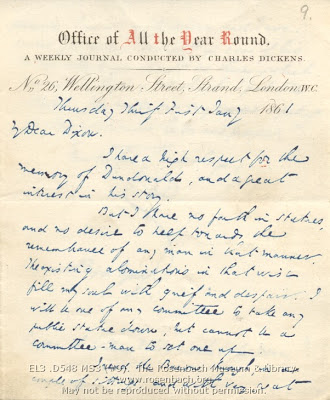 9.
Office of All the Year Round.
A WEEKLY JOURNAL CONDUCTED BY CHARLES DICKENS.
No. 26, Wellington Street, Strand, London W.C
Thursday Thirty First Jany 1861
My Dear Dixon.
I have a high respect for the
memory of Dundonald, and a great
interest in his story.
But I have no faith in statues,
and no desire to help towards the
remembrance of any man in that manner.
The existing abominations in that wise
fill my soul with grief and despair. I
will be one of any committee to take any
public statue down, but cannot be a
committee-man to set one up.
I read the Bacon
couple of and with very great
EL3 .D548 MS3 The Rosenbach Museum & Library
www.rosenbach.org
May not be reproduced without permission.